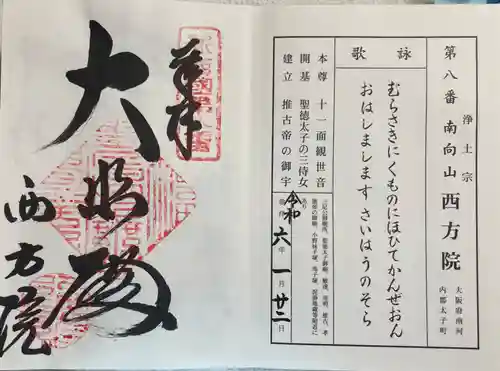 第八番
浄土宗
南向山 西方院
大阪府南河
内郡太子町
詠歌
むらさきにくものにほひてかんぜおん
おはしまします さいはうのそら
本尊 十一面観世音
開基 聖徳太子の三侍女
建立 推古帝の御宇
令和六年一月廿二日
奉拝
大悲殿
西方院